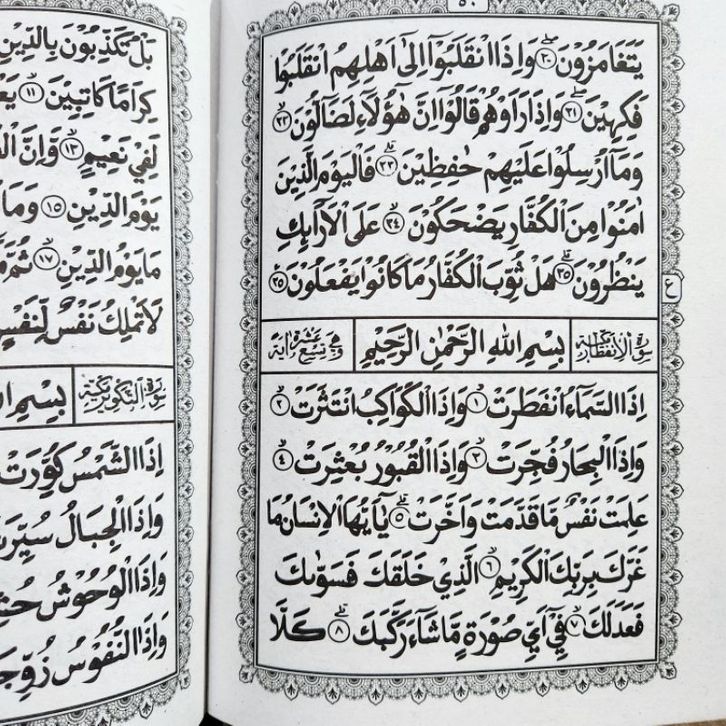 ٥٠
يَتَغَامَزُوْنَ ٣٠ وَاِذَا انْقَلَبُوْٓا اِلٰٓى اَهْلِهِمُ انْقَلَبُوْا
فَكِهِيْنَ ٣١ وَاِذَا رَاَوْهُمْ قَالُوْٓا اِنَّ هٰٓؤُلَآءِ لَضَآلُّوْنَ ٣٢
وَمَآ اُرْسِلُوْا عَلَيْهِمْ حٰفِظِيْنَ ٣٣ فَالْيَوْمَ الَّذِيْنَ
اٰمَنُوْا مِنَ الْكُفَّارِ يَضْحَكُوْنَ ٣٤ عَلَى الْاَرَآئِكِ
يَنْظُرُوْنَ ٣٥ هَلْ ثُوِّبَ الْكُفَّارُ مَا كَانُوْا يَفْعَلُوْنَ ٣٥
ع
سورة الانفطار مكية بِسْمِ اللهِ الرَّحْمٰنِ الرَّحِيْمِ وهي تسع عشرة اية
اِذَا السَّمَآءُ انْفَطَرَتْ ١ وَاِذَا الْكَوَاكِبُ انْتَثَرَتْ ٢
وَاِذَا الْبِحَارُ فُجِّرَتْ ٣ وَاِذَا الْقُبُوْرُ بُعْثِرَتْ ٤
عَلِمَتْ نَفْسٌ مَّا قَدَّمَتْ وَاَخَّرَتْ ٥ يٰٓاَيُّهَا الْاِنْسَانُ مَا
غَرَّكَ بِرَبِّكَ الْكَرِيْمِ ٦ الَّذِيْ خَلَقَكَ فَسَوّٰىكَ
فَعَدَلَكَ ٧ فِيْٓ اَيِّ صُوْرَةٍ مَّا شَآءَ رَكَّبَكَ ٨ كَلَّا
بَلْ تُكَذِّبُوْنَ بِالدِّيْنِ
كِرَامًا كَاتِبِيْنَ ١١
لَفِيْ نَعِيْمٍ ١٣ وَاِنَّ
يَوْمَ الدِّيْنِ ١٥ وَمَا
مَا يَوْمُ الدِّيْنِ ١٧ ثُمَّ
لَا تَمْلِكُ نَفْسٌ لِّنَفْسٍ
سورة التكوير مكية بِسْمِ
اِذَا الشَّمْسُ كُوِّرَتْ
وَاِذَا الْجِبَالُ
وَاِذَا الْوُحُوْشُ
وَاِذَا النُّفُوْسُ